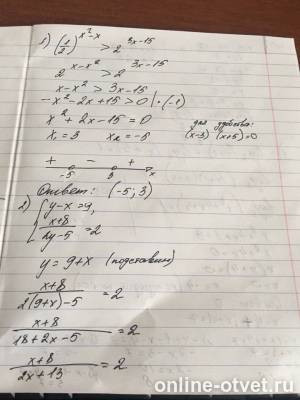 1) (1/2)^(x²-x) > 2^(3x-15)
2^(x-x²) > 2^(3x-15)
x-x² > 3x-15
-x²-2x+15 > 0 | ·(-1)
x²+2x-15 = 0
x₁ = 3 x₂ = -5
для удобства:
(x-3)(x+5)=0
+ - +
-5 3 x
Ответ: (-5; 3)
2) { y-x=9,
x+8/2y-5 = 2
y = 9+x (подставим)
x+8/2(9+x)-5 = 2
x+8/18+2x-5 = 2
x+8/2x+13 = 2
online-otvet.ru